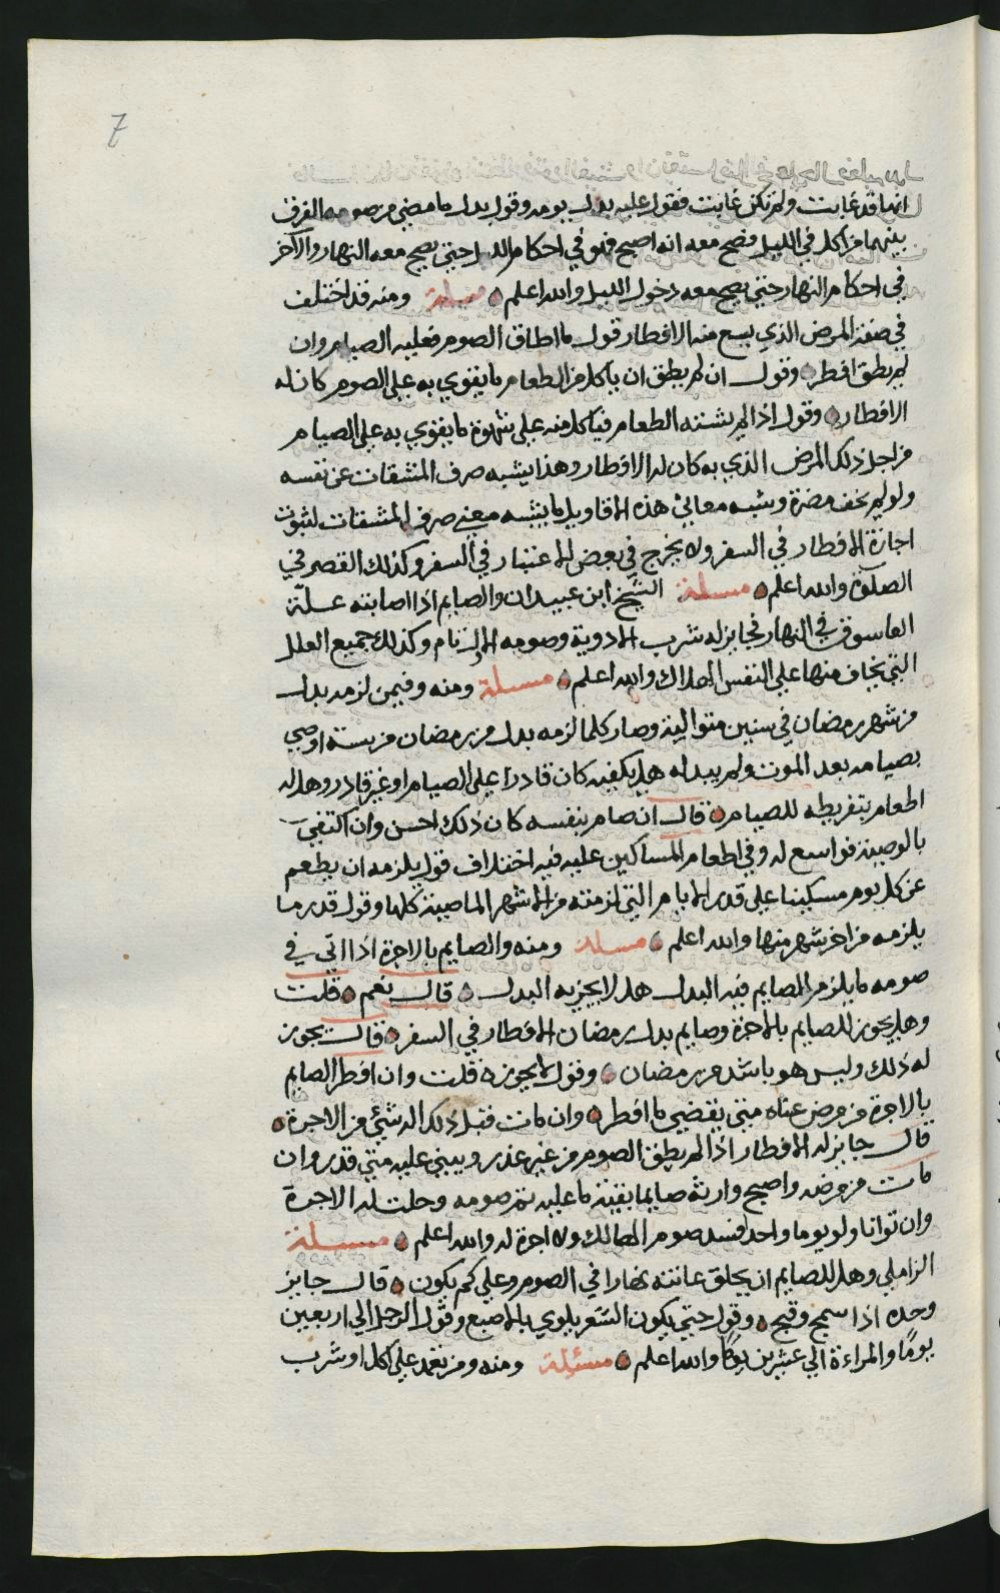 7
انها قد غابت ولم تكن غابت فقول عليه بدل يومه وقول بدل ما مضى من صومه الفرق
بينهما من اكل في الليل فصح معه انه اصبح فهو في احكام الليل حتى يصح معه النهار والآخر
في احكام النهار حتى يصح معه دخول الليل والله اعلم مسئلة ومنه قد اختلف
في صفة المرض الذي يسع منه الافطار قول ما اطاق الصوم فعليه الصيام وان
لم يطق افطر وقول ان لم يطق ان ياكل من الطعام ما يقوي به على الصوم كان له
الافطار وقول اذا لم يشته الطعام فياكل منه على شهوة ما يقوي به على الصيام
من اجل ذلك المرض الذي به كان له الافطار وهذا يشبه صرف المشقات عن نفسه
ولو لم يخف مضرة ويشبه معاني هذه الاقاويل ما يشبه معنى صرف المشقات لثبوت
اجازة الافطار في السفر ولا يخرج في بعض الاعتبار في السفر وكذلك القصر في
الصلوة والله اعلم مسئلة الشيخ ابن عبيدان والصايم اذا اصابته علّة
العاسوق في النهار فجايز له شرب الادوية وصومه تام وكذلك جميع العلل
التي يخاف منها على النفس الهلاك والله اعلم مسئلة ومنه وفيمن لزمه بدل
من شهر رمضان في سنين متوالية وصار كلما لزمه بدل من رمضان من سنة اوصى
بصيامه بعد الموت ولم يبدله هل يكفيه كان قادرا على الصيام او غير قادر وهل له
اطعام بتفريطه للصيام قال ان صام بنفسه كان ذلك احسن وان اكتفى
بالوصية فواسع له وفي اطعام المساكين عليه فيه اختلاف قول يلزمه ان يطعم
عن كل يوم مسكينا على قدر الايام التي لزمته من الاشهر الماضية كلها وقول قدر ما
يلزمه من اخر شهر منها والله اعلم مسئلة ومنه والصايم بالاجرة اذا اتى في
صومه ما يلزم الصايم فيه البدل هل لا يجزيه البدل قال نعم قلت
وهل يجوز للصايم بالاجرة وصايم بدل رمضان الافطار في السفر قال يجوز
له ذلك وليس هو باشد من رمضان وقول لا يجوز قلت وان افطر الصايم
بالاجرة من مرض عناه متى يقضي ما افطر وان مات قبل ذلك اله شئ من الاجرة
قال جايز له الافطار اذا لم يطق الصوم من غير عذر ويبني عليه متى قدر وان
مات من مرضه واصبح وارثه صايما بقية ما عليه تم صومه وحلت له الاجرة
وان توانا ولو يوما واحدا فسد صوم الهالك ولا اجرة له والله اعلم مسئلة
الزاملي وهل للصايم ان يحلق عانته نهارا في الصوم وعلى كم يكون قال جايز
وحده اذا سمج وقبح وقول حتى يكون الشعر يلوي بالاصبع وقول الرجل الى اربعين
يومًا والمراءة الى عشرين يومًا والله اعلم مسئلة ومنه ومن تعمد على اكل او شرب